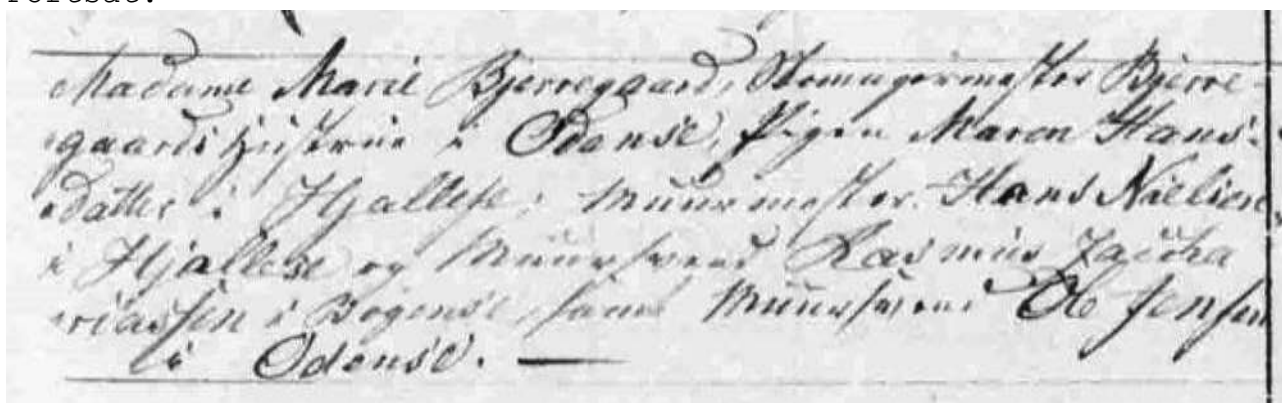 Madame Marie Bjerregaard, Skomagermester Bjerre-
gaards Hustrue i Odense, Pigen Maren Hans-
datter i Hjallese, Muurmester Hans Nielsen
i Hjallese og Muursvend Rasmus Zacha
riassen i Bogense, samt Muursvend Ole Jensen
i Odense. —